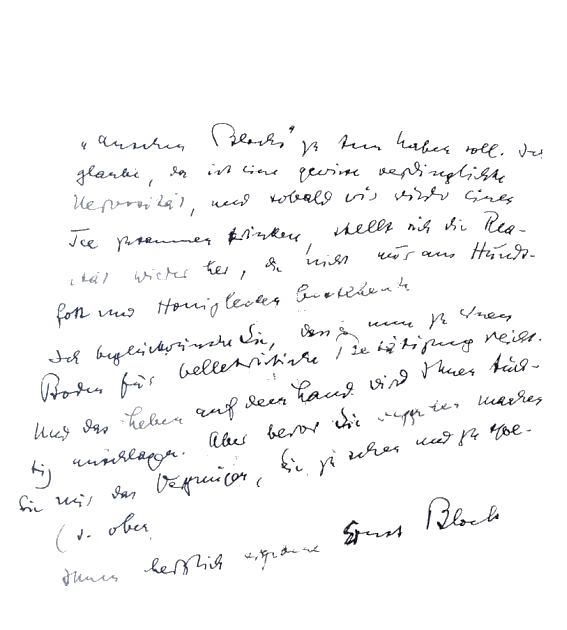 „Anschen Blochs" zu tun haben soll. Ich
glaube, da ist eine gewisse verdinglichte
Nervosität, und sobald wir wieder einen
Tee zusammen trinken, stellt sich die Rea-
lität wieder her, die nicht nur aus Hunds-
fott und Honiglecken besteht.
Ich beglückwünsche Sie, dass nun zu
Boden für belletristische Betätigung reicht.
Und das Leben auf dem Land wird Ihnen tüch-
tig anschlagen. Aber bevor Sie machen
Sie mir das Vergnügen, Sie zu sehen und zu
(s. oben
Ihnen herzlich ergebene Ernst Bloch